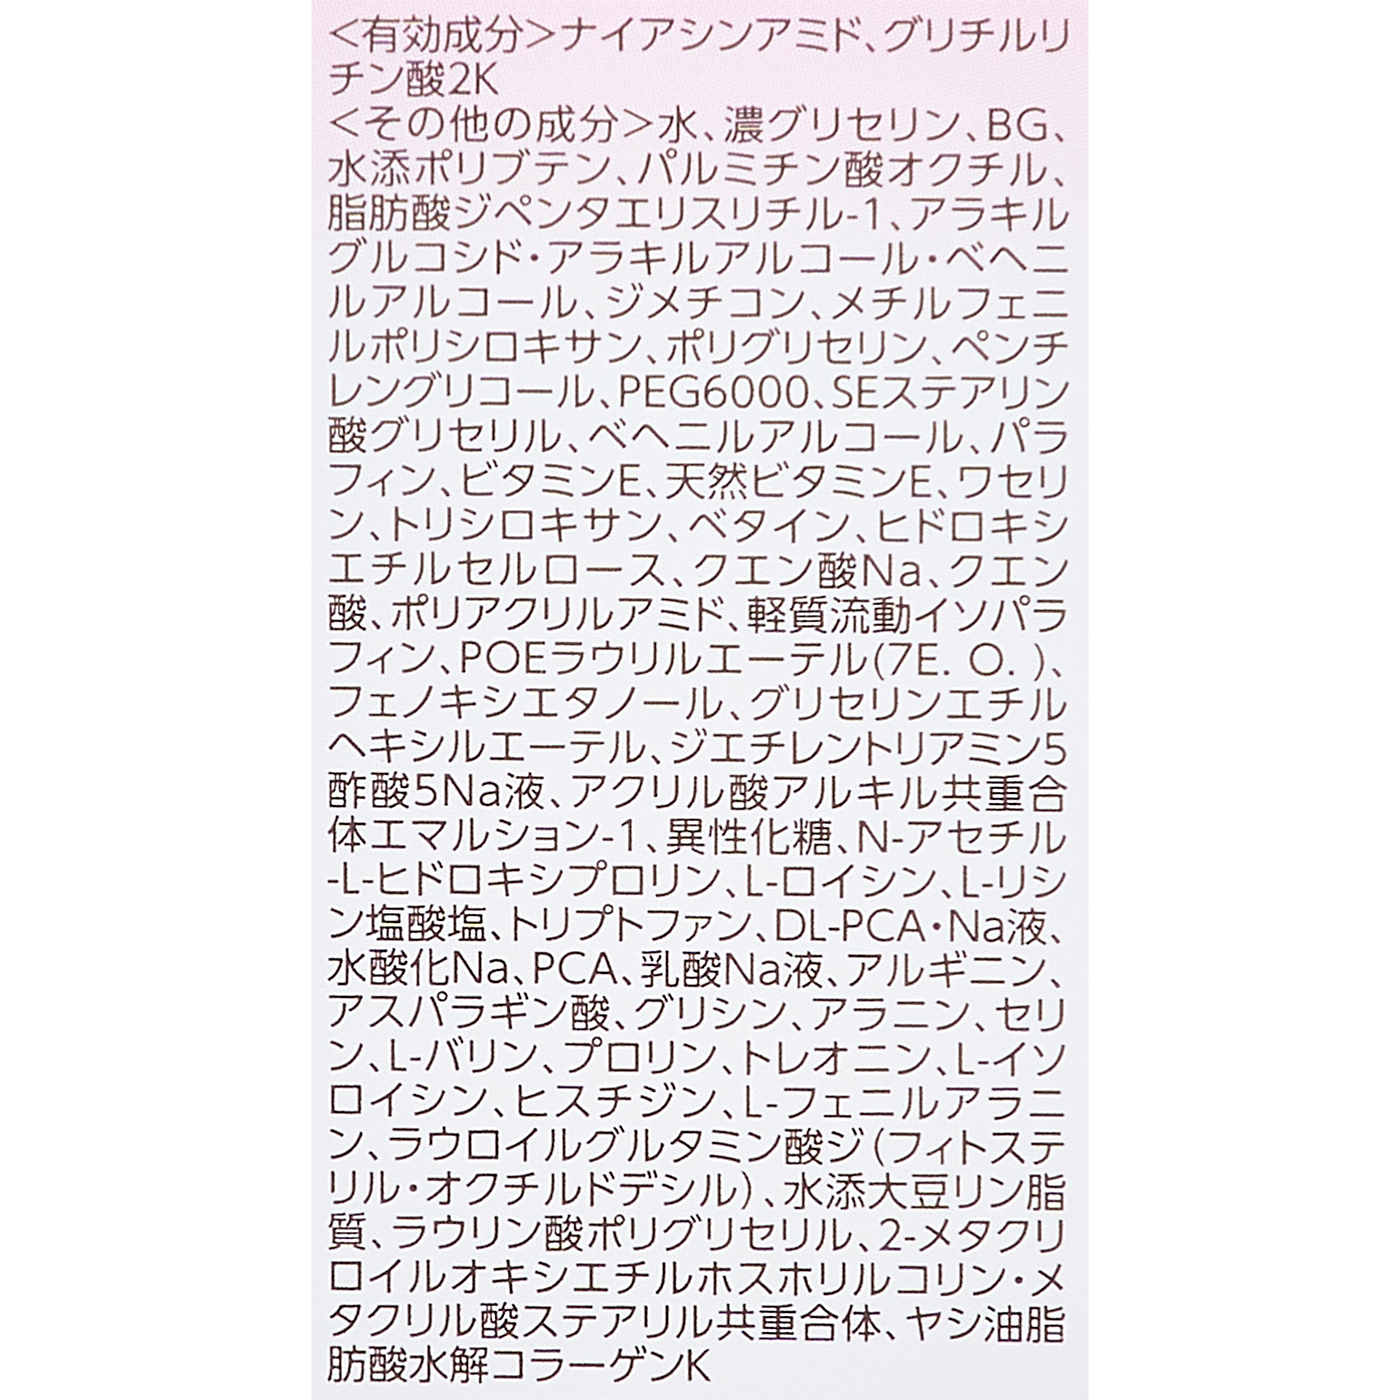 ＜有効成分＞ナイアシンアミド、グリチルリ
チン酸2K
＜その他の成分＞水、濃グリセリン、BG、
水添ポリブテン、パルミチン酸オクチル、
脂肪酸ジペンタエリスリチル-1、アラキル
グルコシド・アラキルアルコール・ベヘニ
ルアルコール、ジメチコン、メチルフェニ
ルポリシロキサン、ポリグリセリン、ペンチ
レングリコール、PEG6000、SEステアリン
酸グリセリル、ベヘニルアルコール、パラ
フィン、ビタミンE、天然ビタミンE、ワセリ
ン、トリシロキサン、ベタイン、ヒドロキシ
エチルセルロース、クエン酸Na、クエン
酸、ポリアクリルアミド、軽質流動イソパラ
フィン、POEラウリルエーテル(7E. O. )、
フェノキシエタノール、グリセリンエチル
ヘキシルエーテル、ジエチレントリアミン5
酢酸5Na液、アクリル酸アルキル共重合
体エマルション-1、異性化糖、N-アセチル
-L-ヒドロキシプロリン、L-ロイシン、L-リシ
ン塩酸塩、トリプトファン、DL-PCA・Na液、
水酸化Na、PCA、乳酸Na液、アルギニン、
アスパラギン酸、グリシン、アラニン、セリ
ン、L-バリン、プロリン、トレオニン、L-イソ
ロイシン、ヒスチジン、L-フェニルアラニ
ン、ラウロイルグルタミン酸ジ(フィトステ
リル・オクチルドデシル)、水添大豆リン脂
質、ラウリン酸ポリグリセリル、2-メタクリ
ロイルオキシエチルホスホリルコリン・メ
タクリル酸ステアリル共重合体、ヤシ油脂
肪酸水解コラーゲンK